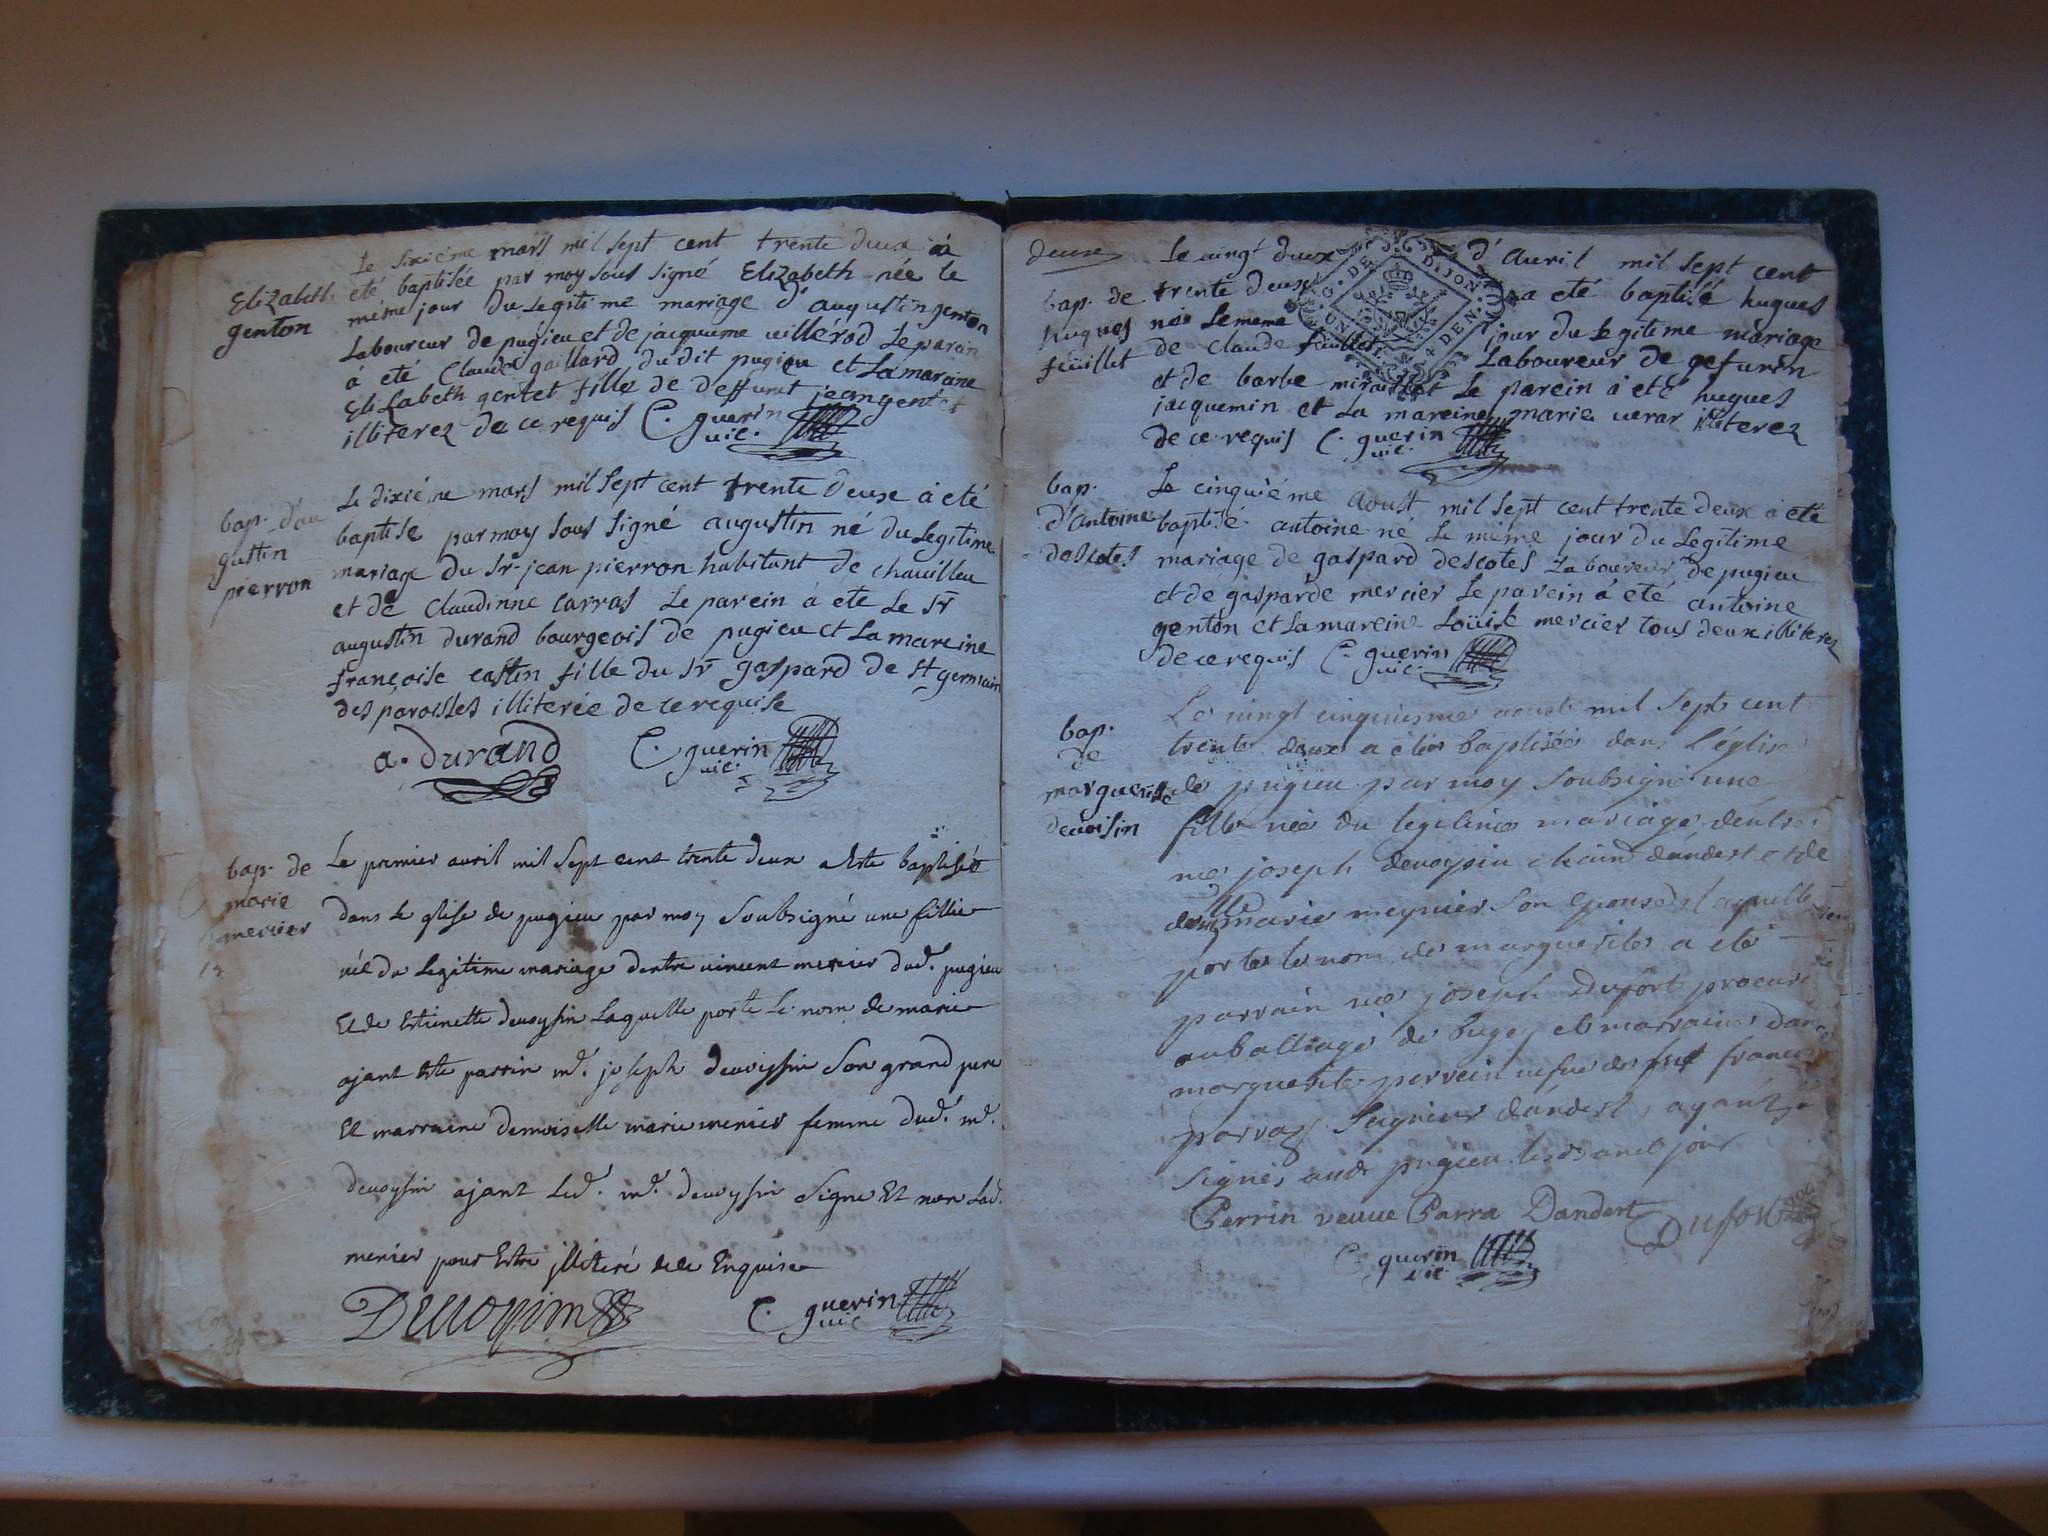 Elizabeth
genton
Le sixiéme mars mil sept cent trente deux à
eté baptisée par moy sous signé Elizabeth née le
méme jour du Legitime mariage d'augustin genton
Laboureur de pugieu et de jacqueme veillerod Le parain
à eté Claude gaillard du dit pugieu et La maraine
Elizabeth gentet fille de deffunt jean gentet
illiterez de ce requis C. guerin
vic.
bap. d'au
gustin
pierron
Le dixiéme mars mil sept cent trente deux à eté
baptise par moy sous signé augustin né du Legitime
mariage du Sr. jean pierron habitant de chavilleu
et de Claudinne Carras Le parein à ete Le Sr
augustin durand bourgeois de pugieu et La mareine
françoise castin fille du Sr gaspard de St germain
des paroisses illiterée de ce requise
a. Durand C. guerin
vic.
bap. de
marie
mercier
Le premier avril mil sept cent trente deux a este baptisée
dans le glise de pugieu par moy soubsigné une fillie
née du Legitime mariage dentre vincent mercier dud. pugieu
Et de Estienette devoysin Laquelle porte Le nom de marie
ajant Este parrin me. joseph devoyssin son grand pere
Et marraine demoiselle marie menier femme dud. me.
devoysin ajant Led. me. devoysin signe Et non Lad.
menier pour Estre jlliteré de Enquise
Devoysin C. guerin
vic
deuxe
bap. de
hugues
feuillet
Le vingt deux d'Avril mil sept cent
trente deux a eté baptisé hugues
née Le meme jour du Legitime mariage
de Claude feuillet Laboureur de gefurin
et de barbe miraillet Le parein à eté hugues
jacquemin et La mareine marie verar illiterez
de ce requis C. guerin
vic.
G. DE DIJON
bap.
d'Antoine
descotes
Le cinquiéme Aoust mil sept cent trente deux à eté
baptisé antoine né Le méme jour du Legitime
mariage de gaspard descotes Laboureur de pugieu
et de gasparde mercier Le parein à eté antoine
genton et La mareine Loüise mercier tous deux illiterez
de ce requis C. guerin
vic.
bap.
de
marguerite
devoisin
Le vingt cinquiesme aoust mil sept cent
trente deux a étée baptisée dans l'église
de pugieu par moy soubsigné une
fille née du legitime mariage déntre
me joseph devoysin dandert et de
marie meynier son epouse laquelle
porte le nom de marguerite a eté
parrain me joseph Dufort procureur
au balliage de bugey et marraine dame
marguerite perrein vefve de feu francois
parraz seigneur dandert, ayant
signés aud pugieu les d an et jour
Perrin veuve Parra Dandert Dufort
C. guerin
vic.